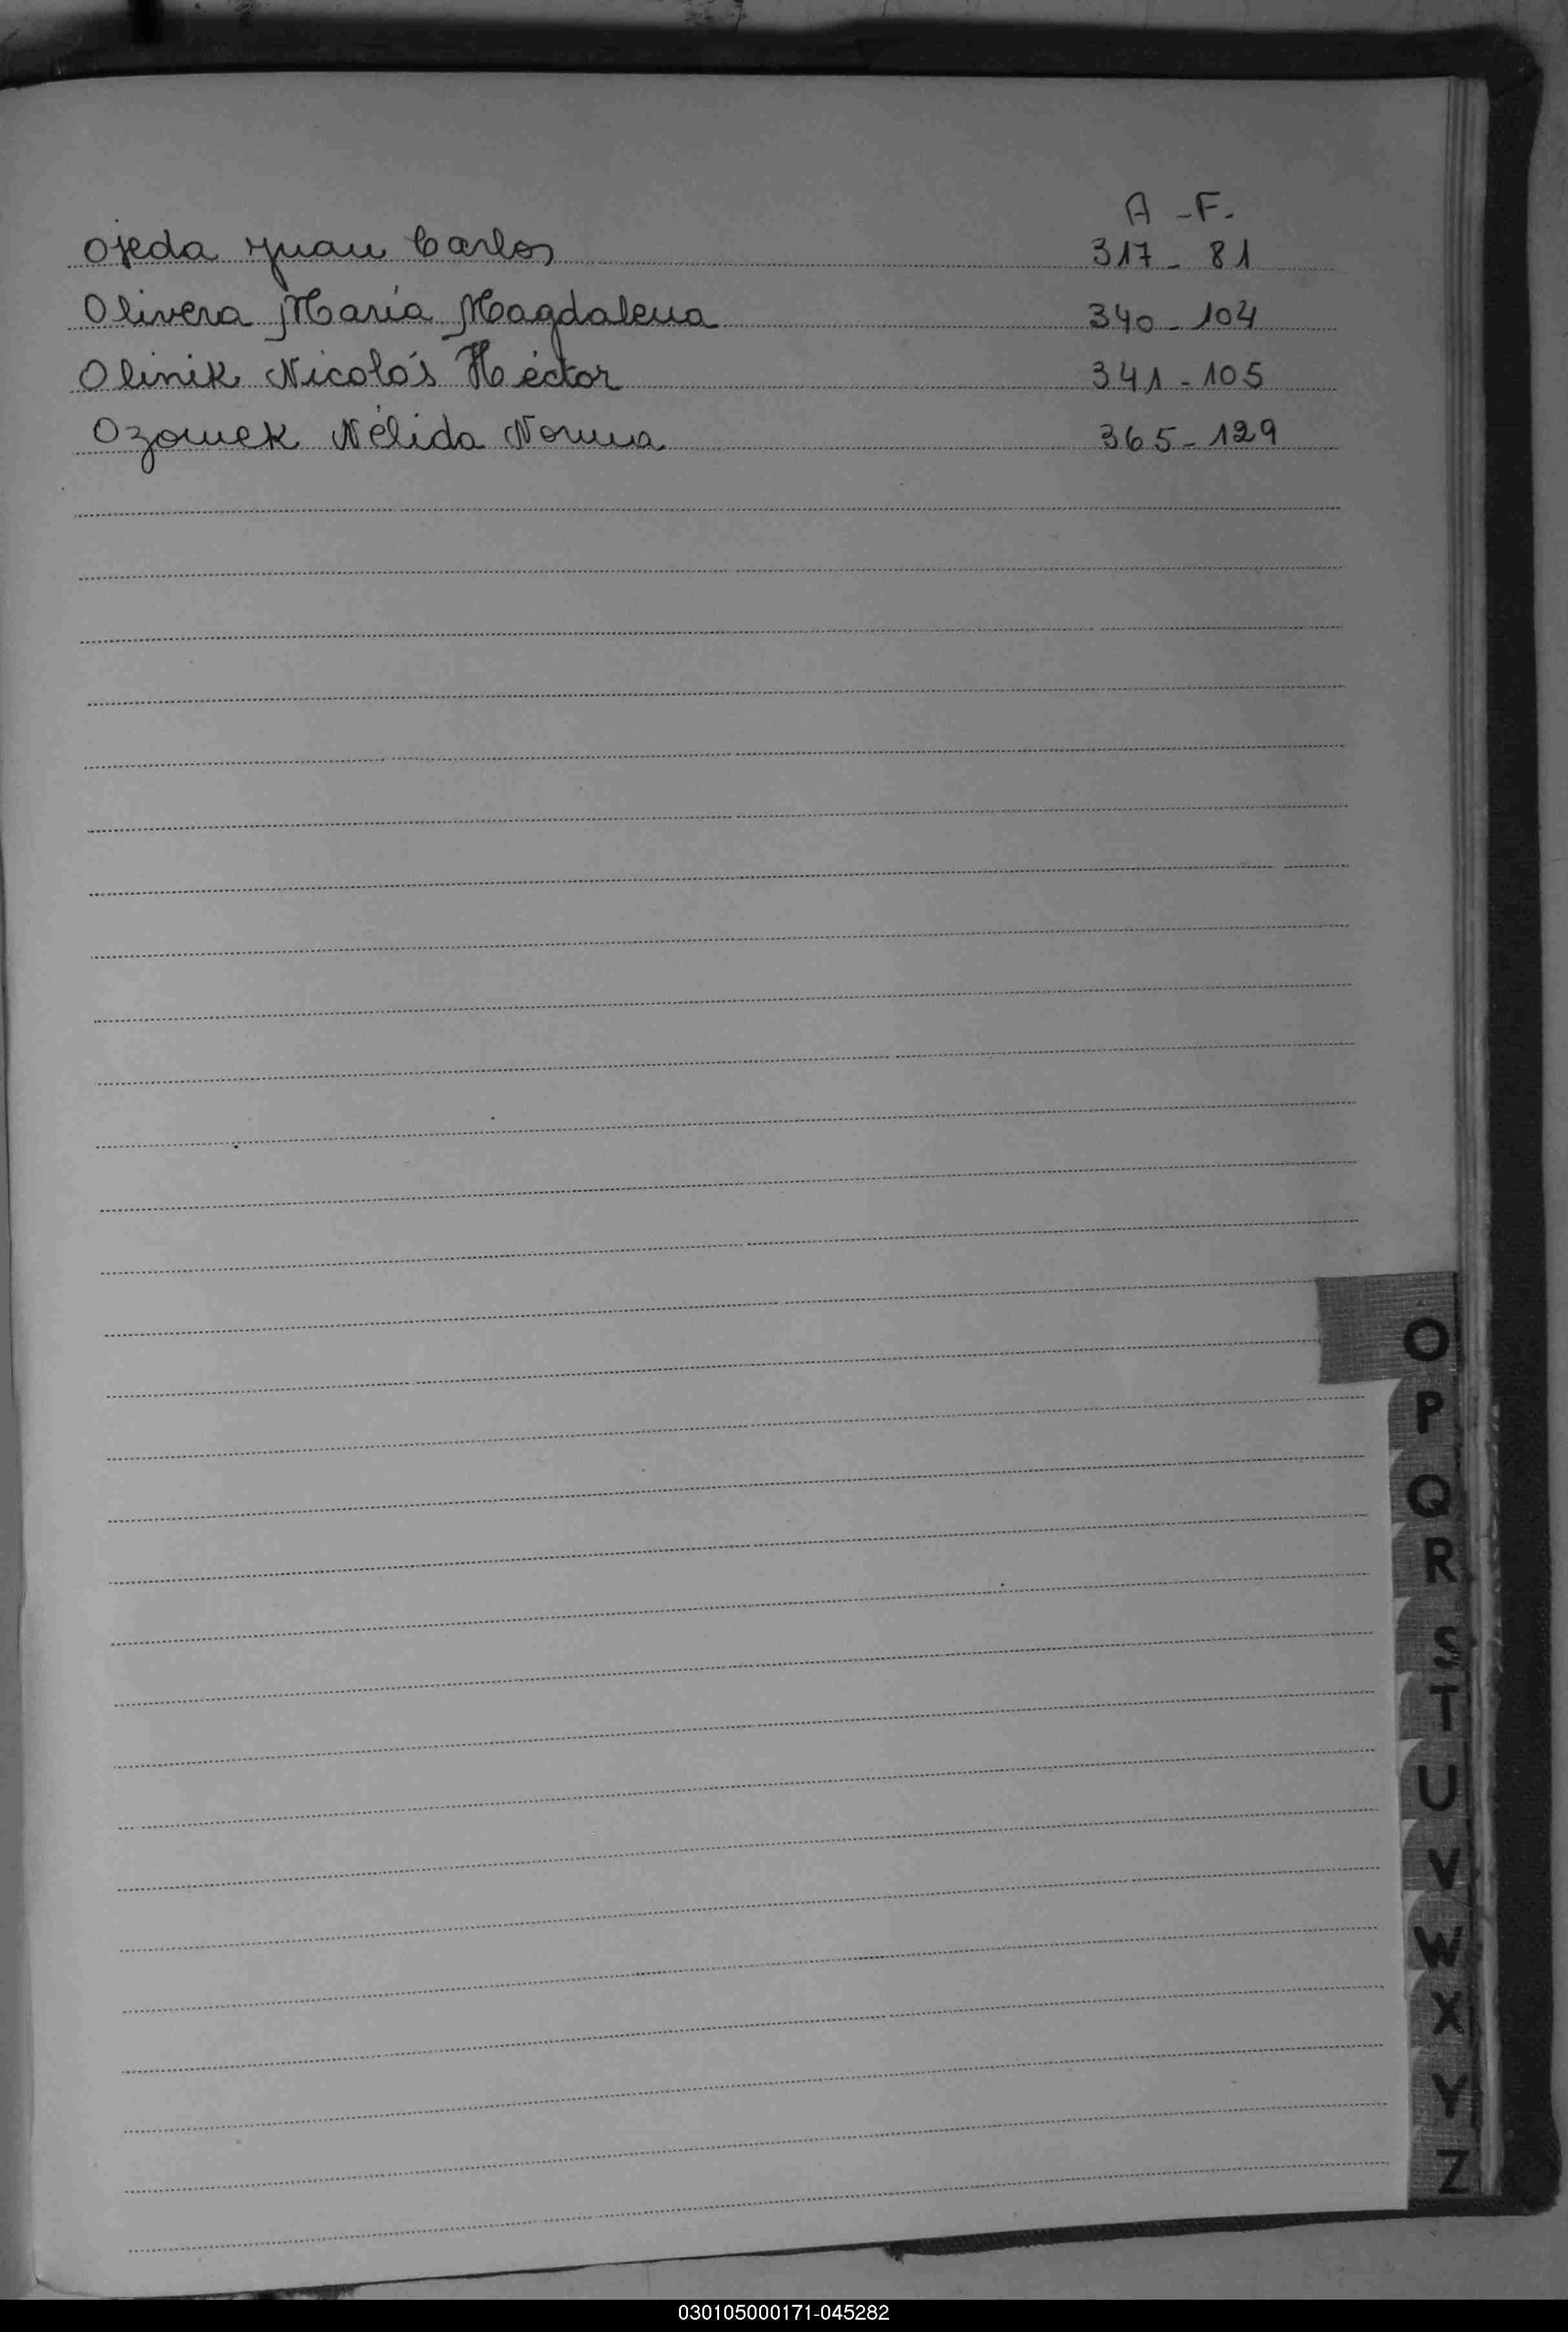 A - F.
Ojeda Juan Carlos 317 - 81
Olivera María Magdalena 340 - 104
Olinik Nicolás Héctor 341 - 105
Ozomek Nélida Norma 365 - 129
O
P
Q
R
S
T
U
V
W
X
Y
Z
030105000171-045282